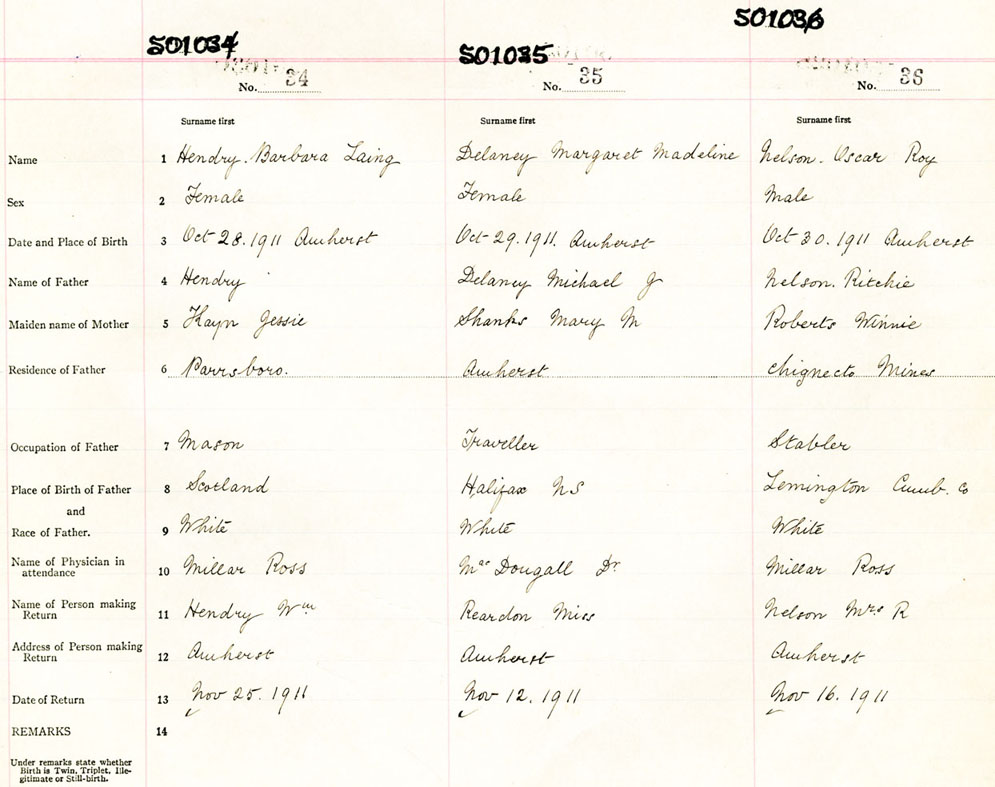 501036
501034 501035
No. 34 No. 35 No. 36
Surname first Surname first Surname first
Name 1 Hendry. Barbara Laing Delaney Margaret Madeline Nelson. Oscar Roy
Sex 2 Female Female Male
Date and Place of Birth 3 Oct 28. 1911 Amherst Oct 29. 1911. Amherst Oct 30. 1911 Amherst
Name of Father 4 Hendry Delaney Michael J Nelson. Ritchie
Maiden name of Mother 5 Jessie Shanks Mary M Roberts Winnie
Residence of Father 6 Parrsboro. Amherst Chignecto Mines
Occupation of Father 7 Mason Traveller Stabler
Place of Birth of Father 8 Scotland Halifax NS Lemington Cumb. Co
and
Race of Father. 9 White White White
Name of Physician in
attendance 10 Millar Ross Mac Dougall Dr Millar Ross
Name of Person making
Return 11 Hendry Wm Reardon Miss Nelson Mrs R
Address of Person making
Return 12 Amherst Amherst Amherst
Date of Return 13 Nov 25. 1911 Nov 12. 1911 Nov 16. 1911
REMARKS 14
Under remarks state whether
Birth is Twin, Triplet, Ille-
gitimate or Still-birth.